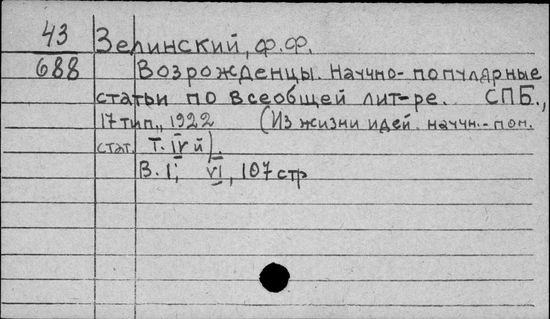 43 Зелинский, Ф.Ф.
688 Возрожденцы. Научно-популярные
статьи по всеобщей лит-ре. СПБ.,
17 тип., 1922 (Из жизни идей. научн.-поп.
стат. Т. IV й).
В. I; VI, 107 стр